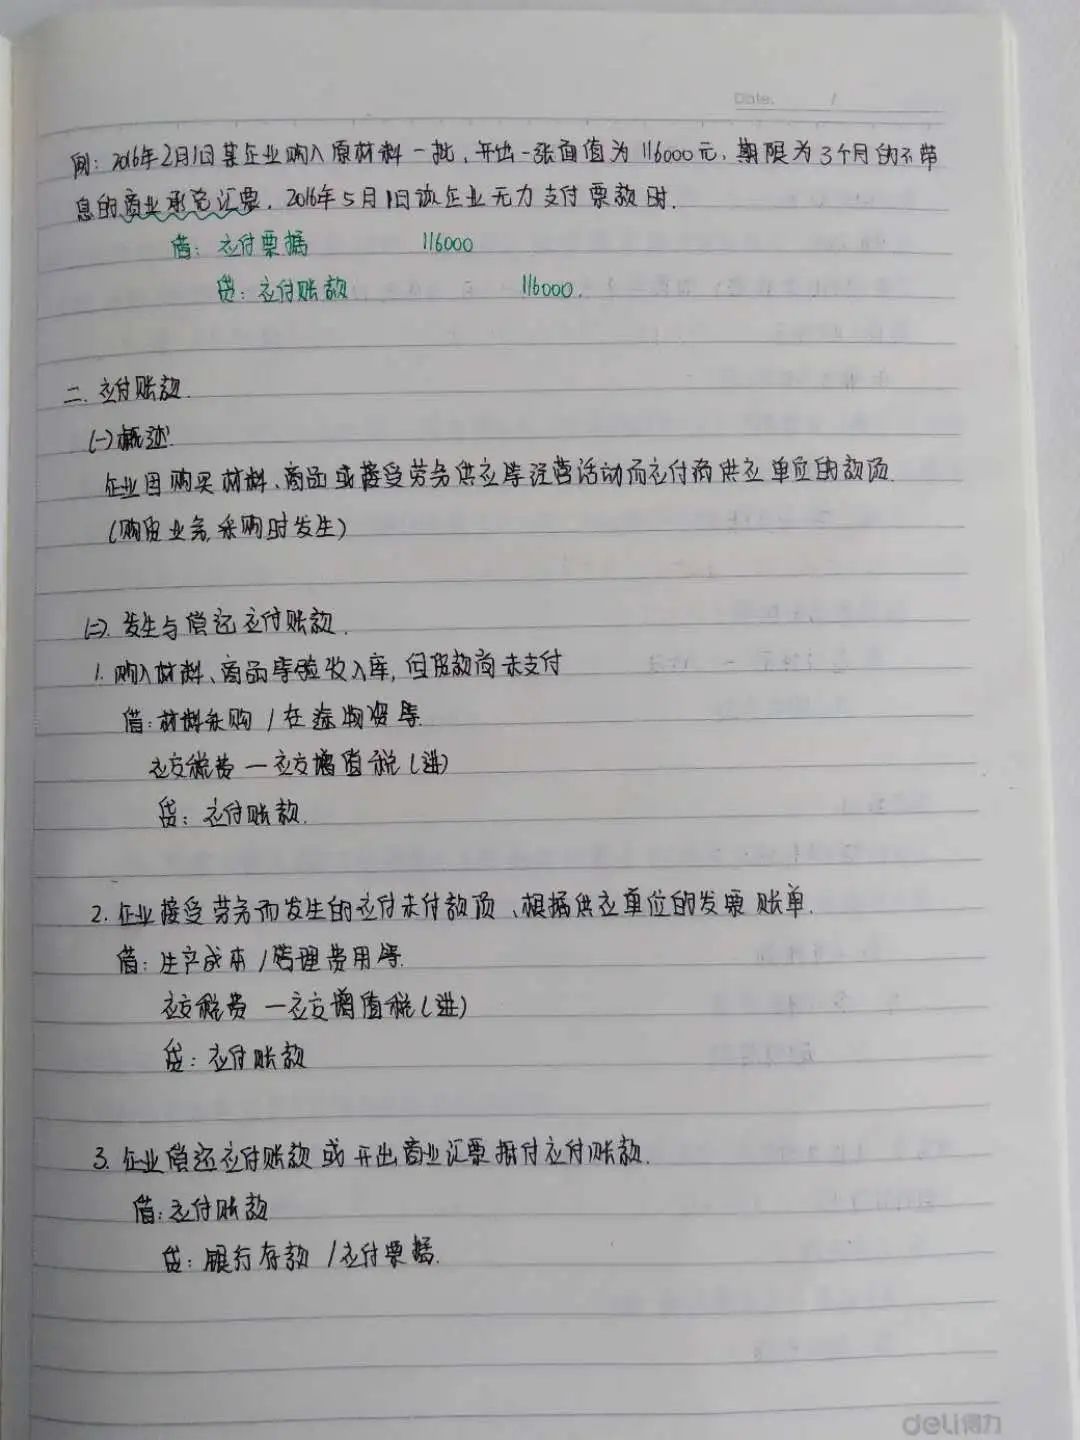 Date: /
例：2016年2月1日某企业购入原材料一批，开出一张面值为116000元，期限为3个月的不带
息的商业承兑汇票，2016年5月1日该企业无力支付票款时.
借：应付票据 116000
贷：应付账款 116000.
二. 应付账款.
(一)概述.
企业因购买材料、商品或接受劳务供应等经营活动而应付给供应单位的款项
(购货业务,采购时发生)
(二). 发生与偿还应付账款.
1. 购入材料、商品等验收入库,但货款尚未支付
借:材料采购 / 在途物资等.
应交税费 — 应交增值税(进)
贷：应付账款.
2. 企业接受劳务而发生的应付未付款项、根据供应单位的发票账单.
借：生产成本 / 管理费用等.
应交税费 — 应交增值税(进)
贷：应付账款
3. 企业偿还应付账款或开出商业汇票抵付应付账款.
借:应付账款
贷：银行存款 / 应付票据.
deli得力